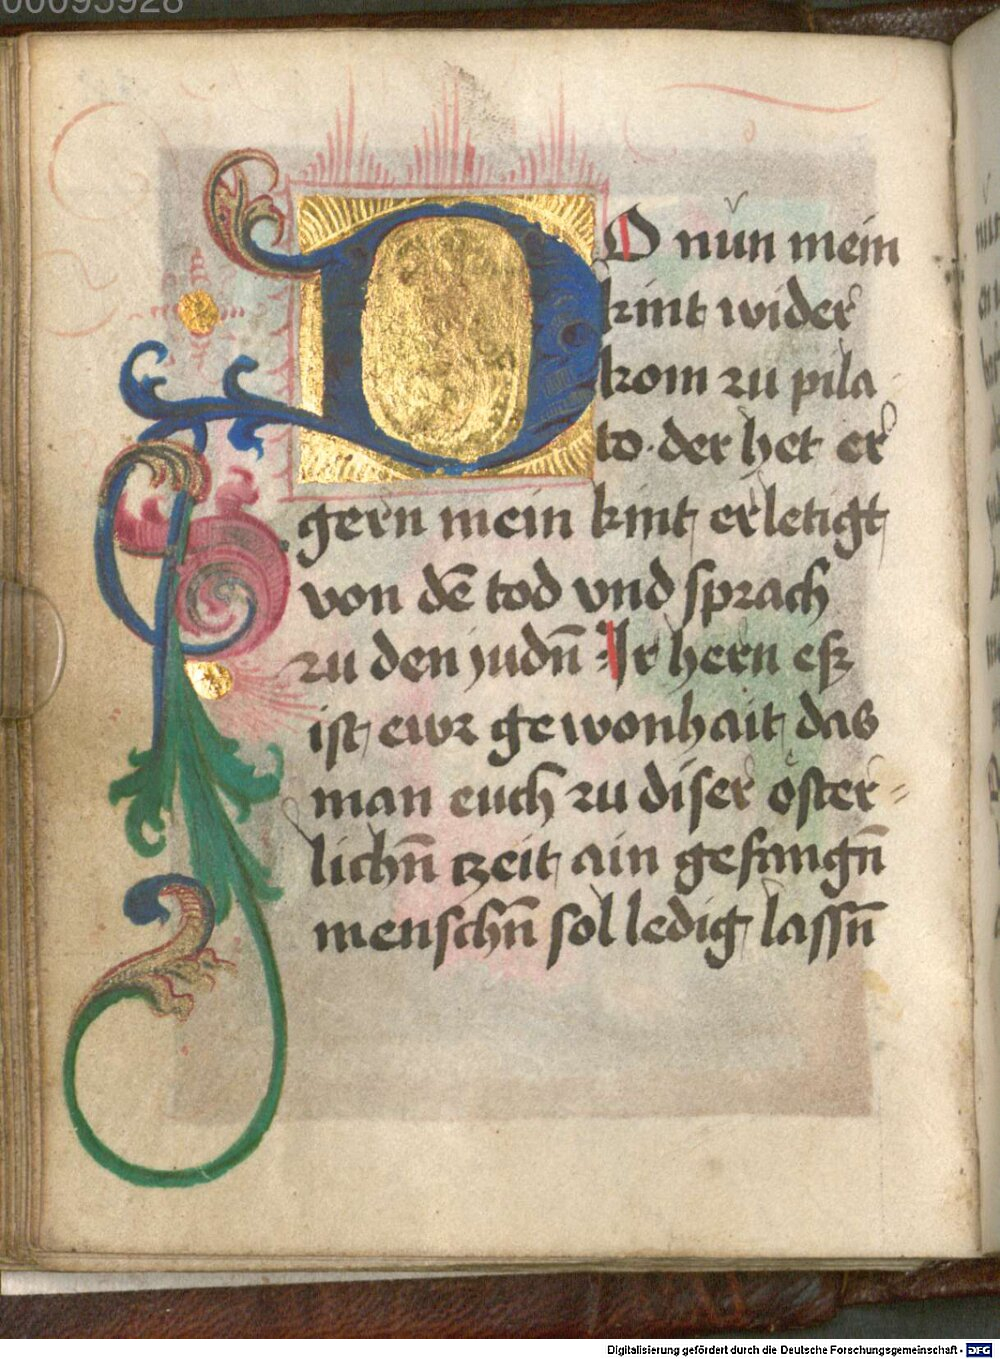 00095928
DO nún mein
kint wider
kom zu pila
to · der het er
gern mein kint erletigt
von dē tod vnd sprach
zu den judn̄ · Ir hern eß
ist ewr gewonhait das
man euch zu diser öster-
lichn̄ tzeit ain gefangn̄
menschn̄ sol ledig lassn̄
Digitalisierung gefördert durch die Deutsche Forschungsgemeinschaft - DFG